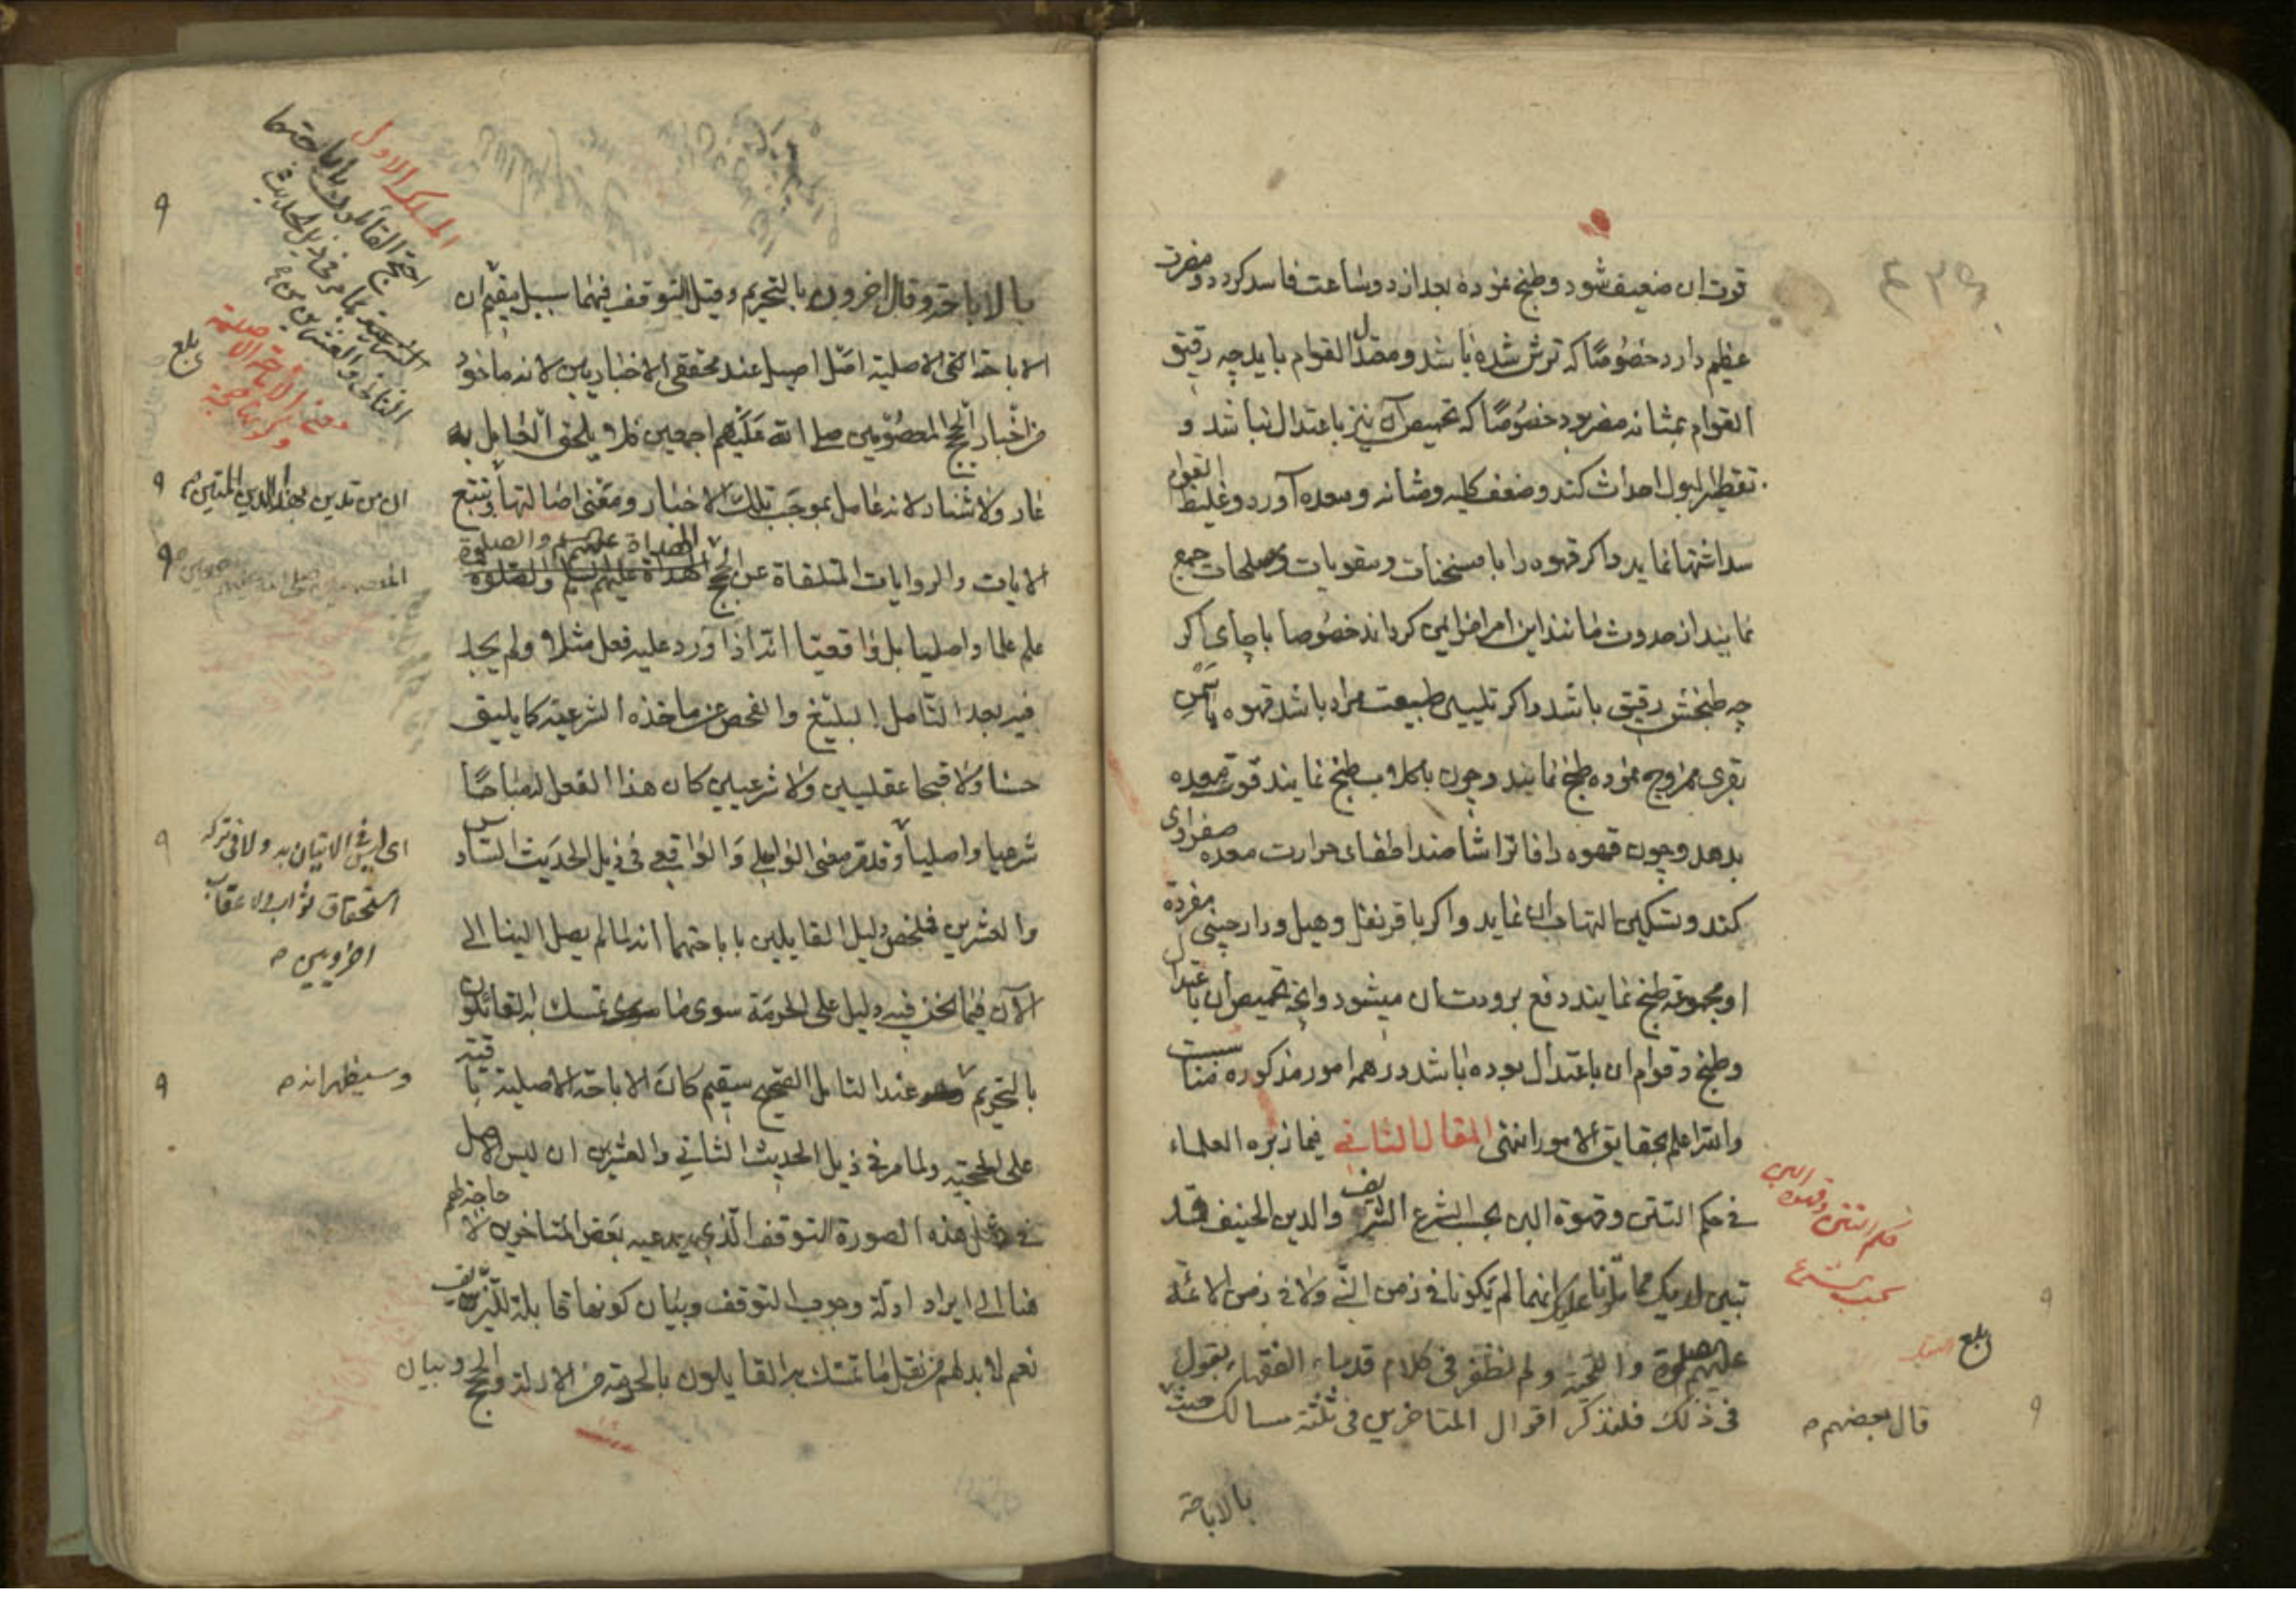 قوت ان ضعیف شود و طبخ نموده بعد از دو ساعت فاسد کردد و مضرت
عظیم دارد خصوصًا که ترش شده باشد و معتدل القوام باید چه رقیق
القوام بمثانه مضر بود خصوصًا که تحمیص آن نیز باعتدال نباشد و
تقطیر البول احداث کند و ضعف کلیه و مثانه و معده آورد و غلیظ القوام
سد اشتها نماید و اکر قهوه را با مسخنات و مقویات و مصلحات جمع
نمایند از حدوث مانند این امراض ایمن کرداند خصوصا با چای اکر
چه طبخش رقیق باشد و اکر تلیین طبیعت مراد باشد قهوه با سمن
بقری ممزوج نموده طبخ نمایند و چون با کلاب طبخ نمایند قوت معده
بدهد و چون قهوه را فاترا شامند اطفای حرارت معده صفراوی
کند و تسکین التهاب ان نماید و اکر با قرنفل و هیل و دارچینی مفردة
او مجموعة طبخ نمایند دفع برودت ان میشود و انچه تحمیص ان باعتدال
وطبخ و قوام ان باعتدال بوده باشد در همه امور مذکوره مناسبت
والله اعلم بحقایق الامور انتهی المقال الثانی فیما زبره العلماء
فی حکم التتن و قهوة البن بحسب الشرع الشریف والدین الحنیف قد
تبین لدیک مما تلونا علیک انهما لم یکونا فی زمن النبی ولا فی زمن الائمة
علیهم الصلوة والتحیة ولم نظفر فی کلام قدماء الفقهاء بقول
فی ذلک فلنذکر اقوال المتاخرین فی ثلثة مسالک حیث
بالاباحة
حکم التتن وقهوة البن
بحسب الشرع
بلغ
قال بعضهم
بالاباحة وقال اخرون بالتحریم وقیل بالتوقف فیهما سبیل یقیم ان
الاباحة التی الاصلیة اصل اصیل عند محققی الاخباریین لانه ماخوذ
من اخبار الحجج المعصومین صلی الله علیهم اجمعین فلا یلحق العامل به
عار ولا شنار لانه عامل بموجب تلک الاخبار ومعنی اصالتها تتبع
الایات والروایات المتلقاة عن الحجج الهداة علیهم السلم والصلوة
علم علما واصلیا بل واقعیا انه اذا ورد علیه فعل مثلا ولم یجد
فیه بعد التامل البلیغ والفحص عن ماخذه الشرعیة کما یلیق
حسنا ولا قبحا عقلیین ولا شرعیین کان هذا الفعل له مباحًا
شرعیا واصلیا وقد مر معنی الواصلی والواقعی فی ذیل الحدیث السادس
والعشرین فملخص دلیل القایلین باباحتهما انه لما لم یصل الینا الی
الآن فیما نحن فیه دلیل علی الحرمة سوی ما تمسک به القائلون
بالتحریم عند التامل الصحیح سقیم کان الاباحة الاصلیة باقیة
علی الحجیة ولما مر فی ذیل الحدیث الثانی والعشرین ان لیس الاصل
فی مثل هذه الصورة التوقف الذی یدعیه بعض المتاخرین لا حاجة لهم
هنا الی ایراد ادلة وجوب التوقف وبیان کونها قابلة للتزییف
نعم لا بد لهم من نقل ما تمسک به القایلون بالحرمة من الادلة والحجج وبیان
المسلک الاول
احتج القائلون باباحتهما
بما مر فی ذیل الحدیث
الثانی والعشرین
بلغ
ای لیس فی الاتیان به ولا فی ترکه
استحقاق ثواب ولا عقاب
اخرویین
وسیظهر انه